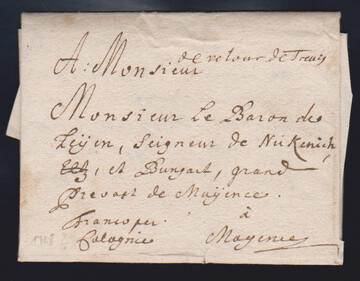 A: Monsieur
de retour de Trevis
Monsieur le Baron de
Leÿen, Seigneur de Nickenich,
et Bungart, grand
Prevost de Mayence.
à
franco per
Cologne
Mayence